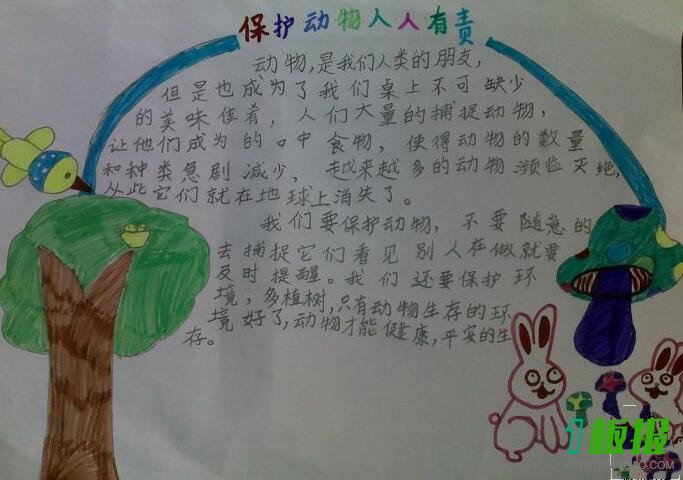 保护动物人人有责
动物,是我们人类的朋友,
但是也成为了我们桌上不可缺少
的美味佳肴,人们大量的捕捉动物,
让他们成为的口中食物,使得动物的数量
和种类急剧减少,越来越多的动物濒临灭绝,
从些它们就在地球上消失了。
我们要保护动物,不要随意的
去捕捉它们看见别人在做就要
及时提醒。我们还要保护环
境,多植树,只有动物生存的环
境好了,动物才能健康,平安的生
存。
板报